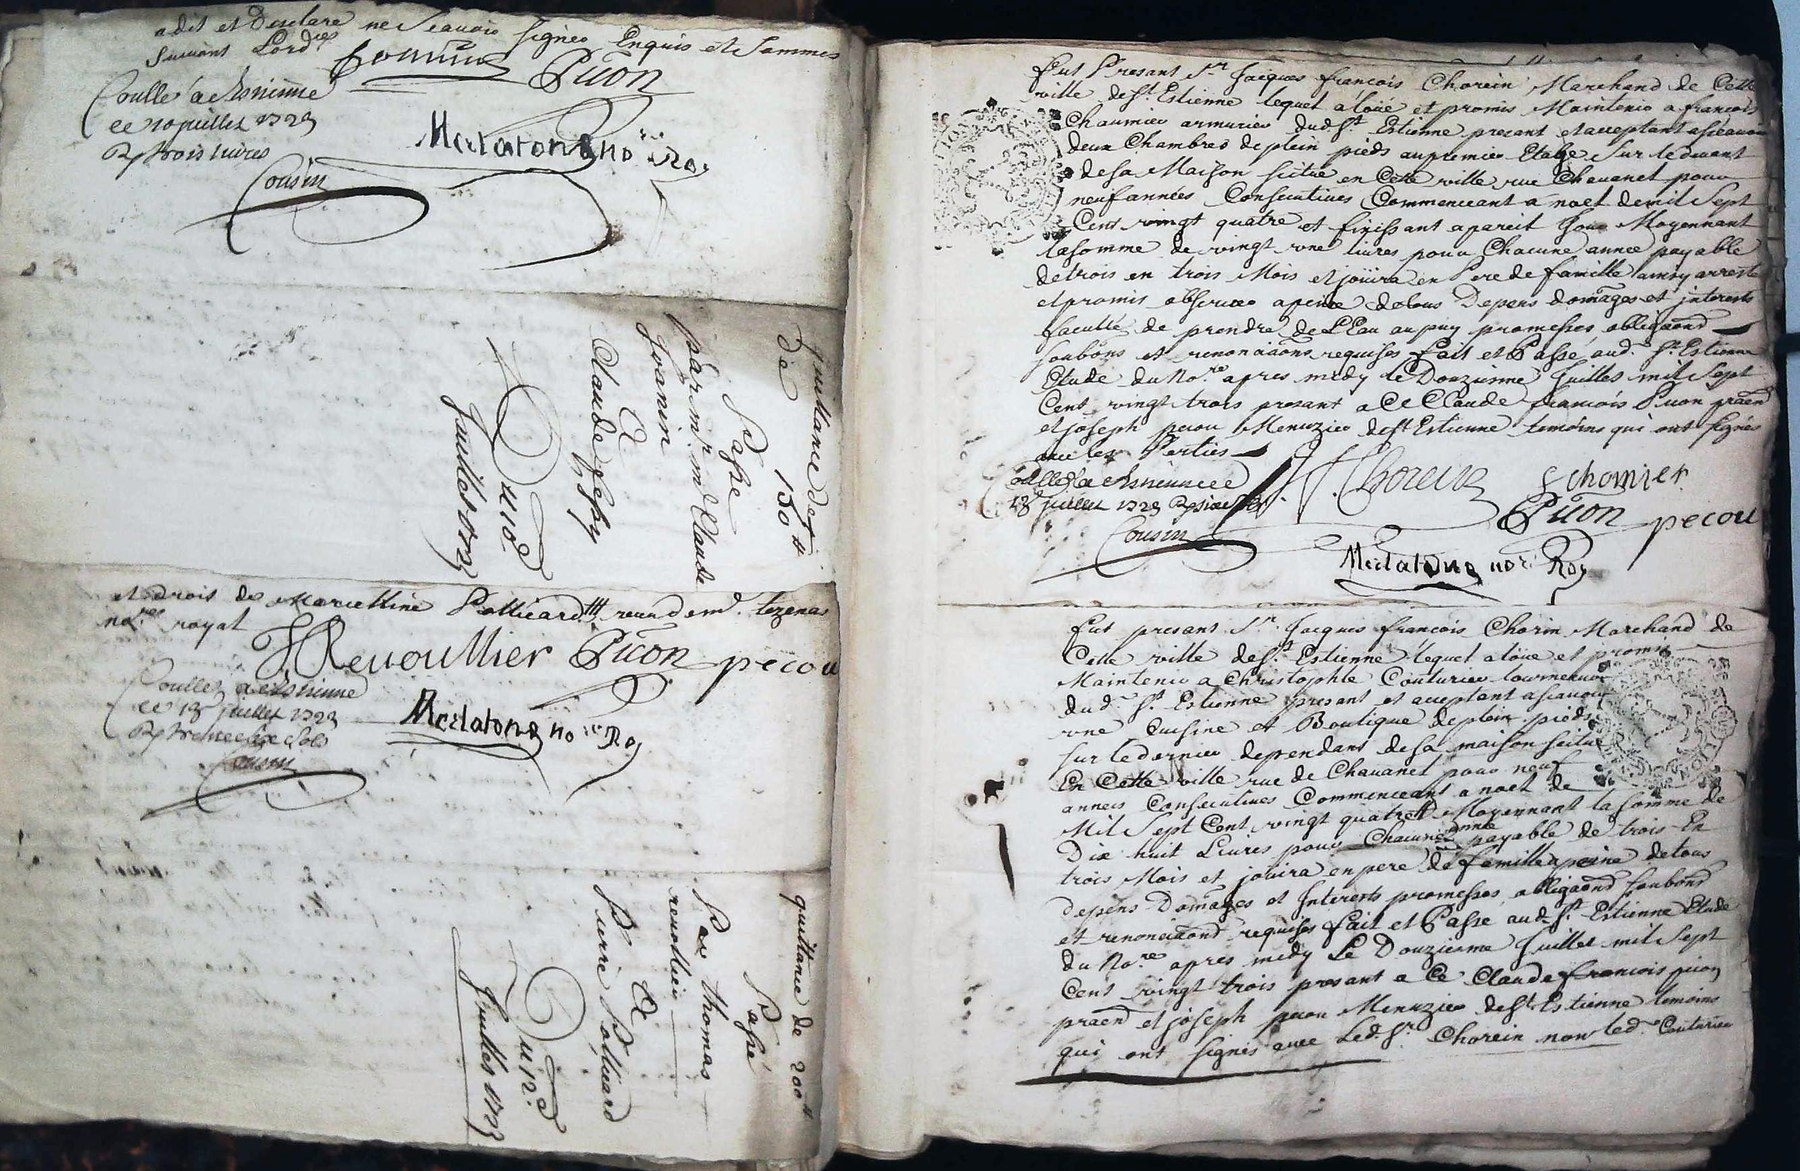 a dit et desclare ne scavoir signer Enquis et Sommes
suivant Lord.ces
Pion
Coullé a St Estienne
ce 10 juillet 1723
R. trois livres
Cousin
Merlaton no.re Roy
quittance de 150 #
de
Passe
par mr me Claude
granin
A
Claude
Du 10e
Juillet 1723
et drois de Marcelline Pollicard reeu d em.d tezenas
no.re royal
Revoullier Pion pecou
Coullé a St Estienne
ce 13 juillet 1723
R. treize sols
Cousin
Merlaton no.re Roy
quittance de 200 #
Passé
Par thomas
revollier
A
Pierre Polliard
Du 12e
Juillet 1723
fut Presant Sr Jacques françois Chorein Marchand de Cette
ville de St Estienne lequel a loüé et promis Maintenir a françois
Chaumier armurier dud St Estienne presant et acceptant asscavoir
deux Chambres de plein pieds au premier Etage sur le devant
de sa Maison scitue en Cette ville rue Chavanet pour
neuf années Consecutives Commenceant a noel de mil Sept
Cent vingt quatre et finissant a pareil Jour Moyennant
la somme de vingt une livres pour Chacune annee payable
de trois en trois Mois et joüira en Pere de famille ainsy arresté
et promis observer a peine de tous Depens domages et interests
faculté de prendre de L'Eau au puy promesses obligaons
soubons et renonciaons requises fait et Passé aud. St Estienne
Etude du No.re apres midy le Douzieme Juillet mil Sept
Cent vingt trois presant a Ce Claude françois Pion praen
et joseph pecou Menuzier de St Estienne temoins qui ont signés
avec les Parties
Coullé a St Estienne ce
13 juillet 1723 R. six sols
Cousin
J. f. Chorein f chomier
Pion pecou
Merlaton no.re Roy
fut presant Sr. Jacques françois Chorin Marchand de
Cette ville de St Estienne lequel a loüe et promis
Maintenir a Christophle Couturier tourneur
dud. St. Estienne presant et acceptant asscavoir
une Cuisine et Boutique de plein pieds
sur le dernier dependant de sa maison scitue
En Cette ville rue de Chavanet pour neuf
annees Consecutives Commenceant a noel de
Mil Sept Cent vingt quatre Moyennant la somme de
Dix huit Livres pour Chacune annee payable de trois En
trois Mois et jouira en pere de famille a peine de tous
depens Domages et Interests promesses obligaons soubons
et renonciaons requises fait et Passe aud. St. Estienne Etude
du No.re apres midy Le Douziesme Juillet mil Sept
Cent vingt trois presant a Ce Claude francois pion
praen et joseph pecou Menuzier de St Estienne temoins
qui ont signés avec Led. Sr. Chorein non led. Couturier